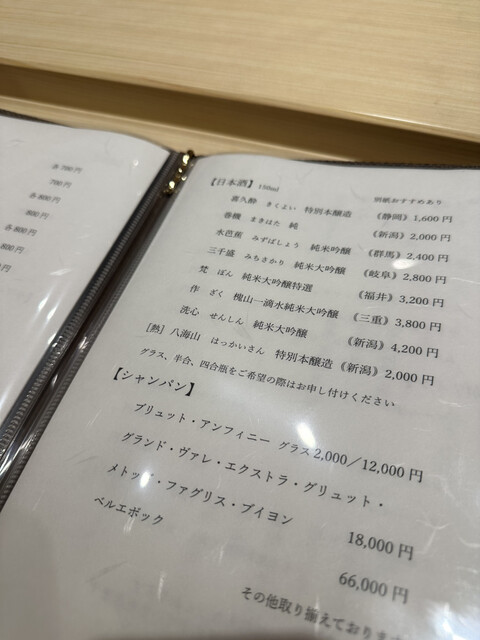 各700円
700円
各800円
800円
各800円
800円
各800円
【日本酒】150ml 別紙おすすめあり
喜久酔 きくよい 特別本醸造 《静岡》1,600円
巻機 まきはた 純 《新潟》2,000円
水芭蕉 みずばしょう 純米吟醸 《群馬》2,400円
三千盛 みちさかり 純米大吟醸 《岐阜》2,800円
梵 ぼん 純米大吟醸特選 《福井》3,200円
作 ざく 槐山一滴水純米大吟醸 《三重》3,800円
洗心 せんしん 純米大吟醸 《新潟》4,200円
[熱] 八海山 はっかいさん 特別本醸造 《新潟》2,000円
グラス、半合、四合瓶をご希望の際はお申し付けください
【シャンパン】
ブリュット・アンフィニー グラス2,000／12,000円
グランド・ヴァレ・エクストラ・グリュット・
メトッド・ファグリス・ブイヨン 18,000円
ベルエポック 66,000円
その他取り揃えております